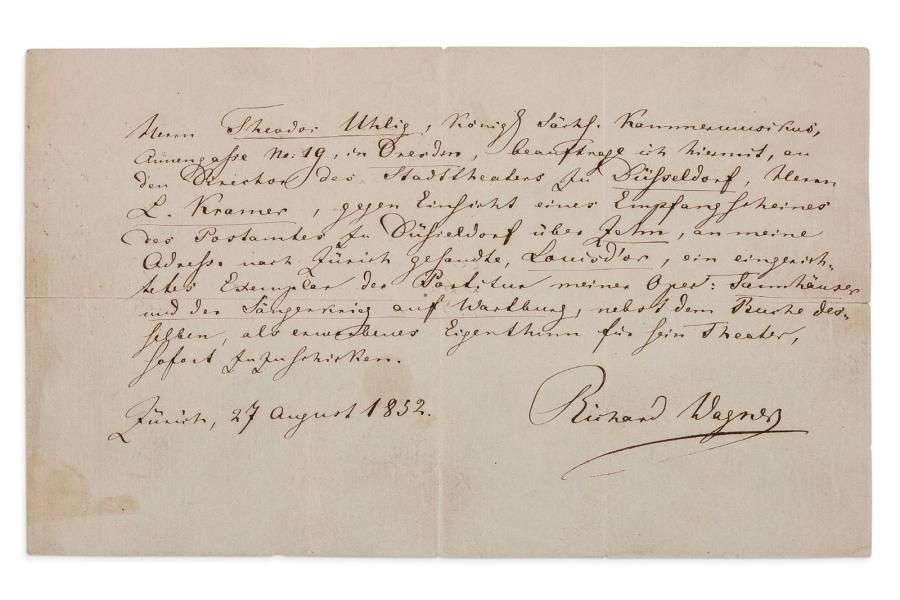 Herrn Theodor Uhlig, Königl Sächs. Kammermusikus,
Annengasse No. 19, in Dresden, beauftrage ich hiermit, an
den Director des Stadttheaters zu Düsseldorf, Herrn
L. Kramer, gegen Einsicht eines Empfangscheines
des Postamtes zu Düsseldorf über Zehn, an meine
Adresse nach Zürich gesandte, Louisd'or, ein eingerich-
tetes Exemplar der Partitur meiner Oper: Tannhäuser
und der Sängerkrieg auf Wartburg, nebst dem Buche des-
selben, als erworbenes Eigenthum für sein Theater,
sofort zuzuschicken.
Zürich, 27 August 1852.
Richard Wagner